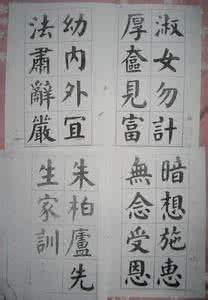 淑女勿計
厚奩見富
幼内外冝
法肅辭嚴
暗想施恵
無念受恩
朱柏廬先
生家訓